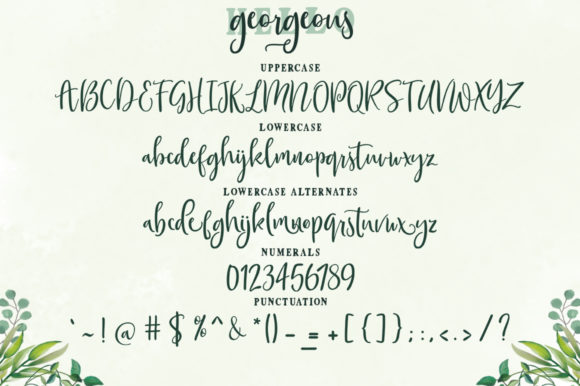 HELLO
georgeous
UPPERCASE
ABCDEFGHIJKLMNOPQRSTUVWXYZ
LOWERCASE
abcdefghijklmnopqrstuvwxyz
LOWERCASE ALTERNATES
abcdefghijklmnopqrstuvwxyz
NUMERALS
0123456789
PUNCTUATION
`~!@#$%^&*()-_=+[{]};:,<.>/?